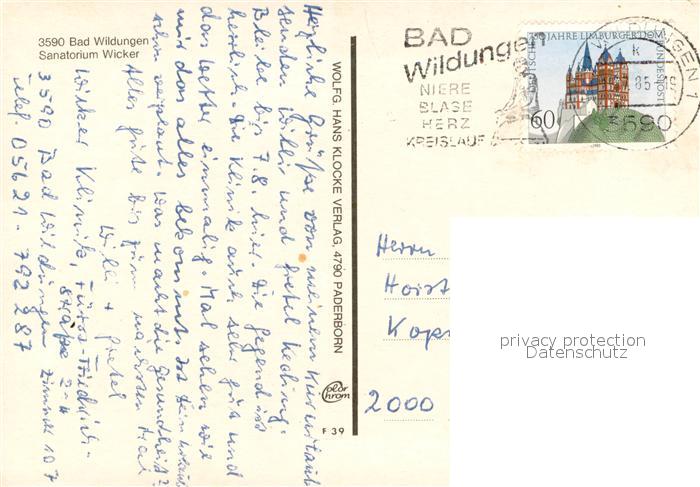 3590 Bad Wildungen
Sanatorium Wicker
BAD
Wildungen
NIERE
BLASE
HERZ
KREISLAUF
750 JAHRE LIMBURGER DOM
DEUTSCHE BUNDESPOST
60
WILDUNGEN 1
k
85
3590
Herzliche Grüße von meinem Kurentlaub
senden Willi und Gretel
Bleibe bis 7.8. hier. Die Gegend ist
herrlich. Die Klinik auch sehr gut und
das Wetter einmalig. Mal sehen wie
mir das alles bekommt. Ist Dein Urlaub
schon verplant. Was macht die Gesundheit?
Alles Gute bis zum nächsten Mal
Willi + Gretel
Wicker Klinik, Fürst-Friedrich-
Straße 2-4
3590 Bad Wildungen Zimmer 107
Tel. 05621-792287
WOLFG. HANS KLOCKE VERLAG, 4790 PADERBORN
color
chrom
F 39
Herrn
Horst
2000
privacy protection
Datenschutz